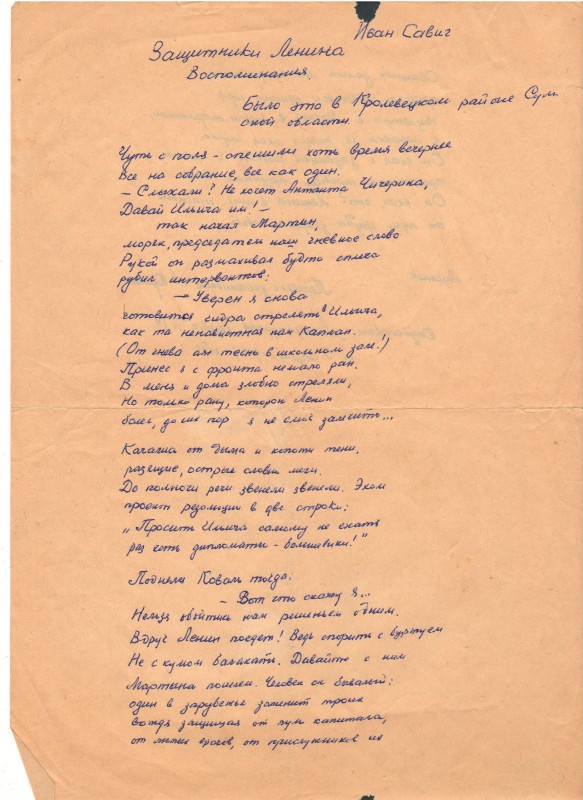 Иван Савич
Защитники Ленина
Воспоминания.
Было это в Кролевецком районе Сум
ской области.
Чуть с поля - спешили хоть время вечернее
Все на собрание, все как один.
- Слыхали? Не хочет Антанта Чичерина,
Давай Ильича им! -
так начал Мартын,
моряк, председатель наш гневное слово
Рукой он размахивал будто сплеча
рубил интервентов:
- Уверен я снова
готовится гидра стрелять в Ильича,
как та ненавистная нам Каплан.
(От гнева аж тесно в школьном зале!)
Принес я с фронта немало ран.
В меня и дома злобно стреляли,
Но только рану, которой Ленин
болел, до сих пор я не смог залечить...
Качались от дыма и копоти тени,
разящие, острые словно мечи.
До полночи речи звенели звенели. Эхом
проект резолюции в две строки:
"Просить Ильича самому не ехать
раз есть дипломаты - большевики!"
Поднялся Коваль тогда:
- Вот что скажу я...
Нельзя обойтись нам решеньем одним.
Вдруг Ленин поедет! Ведь спорить с буржуем
Не с кумом балакать. Давайте с ним
Мартына пошлем. Человек он бывалый:
один в зарубежье заменит троих
вождя защищая от пули капитала,
от лютых врагов, от прислужников их